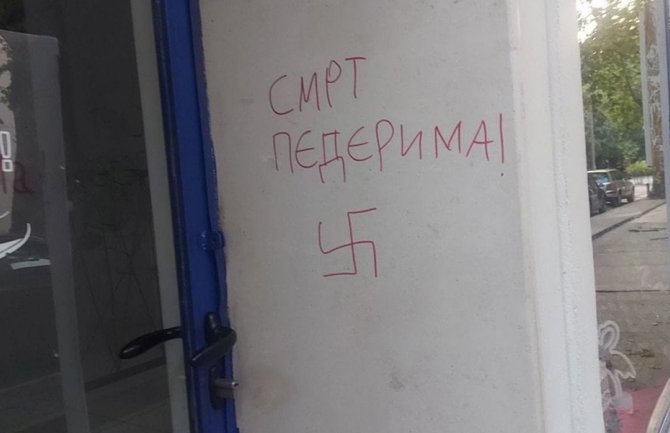 СМРТ
ПЕДЕРИМА!
!